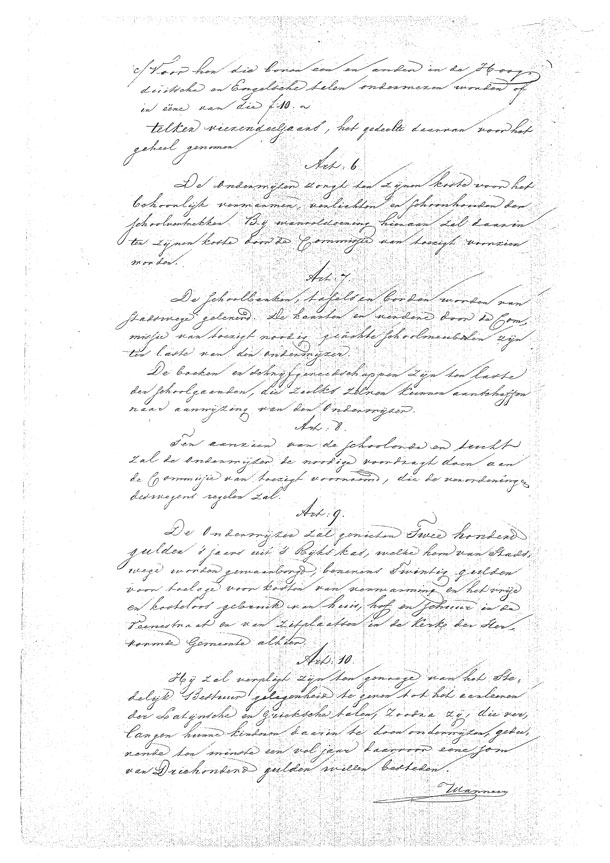 c/ Voor hen die boven een en ander in de Hoog-
duitsche en Engelsche talen onderwezen worden of
in eene van die f 10. "
telken vierendeeljaars, het gedeelte daarvan voor het
geheel genomen
Art: 6
De Onderwijzer zorgt ten zijnen koste voor het
behoorlijk verwarmen, verlichten en schoonhouden der
schoolvertrekken. Bij wanvoldoening hieraan zal daarin
te zijnen koste door de Commissie van toezigt voorzien
worden.
Art: 7
De schoolbanken, tafels en borden worden van
stadswege geleverd. De kaarten en verdere door de Com-
missie van toezigt noodig geachte schoolmeubelen zijn
ten laste van den onderwijzer.
De boeken en schrijfgereedschappen zijn ten laste
der schoolgaanden, die zulks zelven kunnen aanschaffen
naar aanwijzing van den Onderwijzer.
Art: 8.
Ten aanzien van de schoolorde en tucht
zal de onderwijzer de noodige voordragt doen aan
de Commissie van toezigt voornoemd, die de verordening
deswegens regelen zal.
Art: 9.
De Onderwijzer zal genieten Twee honderd
gulden 's jaers uit 's Rijks kas, welke hem van Stads-
wege worden gewaarborgd, benevens Twintig gulden
voor toelage voor kosten van verwarming en het vrije
en kosteloos gebruik van huis, hof en schuur in de
Veenestraat en van zitplaatsen in de Kerk der Her-
vormde Gemeente alhier.
Art: 10.
Hij zal verpligt zijn ten genoege van het Ste-
delijk Bestuur gelegenheid te geven tot het aanleeren
der Latijnsche en Grieksche talen, zoodra zij, die ver-
langen hunne kinderen daarin te doen onderwijzen, gedu-
rende ten minste een vol jaar daarvoor eene som
van Driehonderd gulden willen besteden.
Wanneer